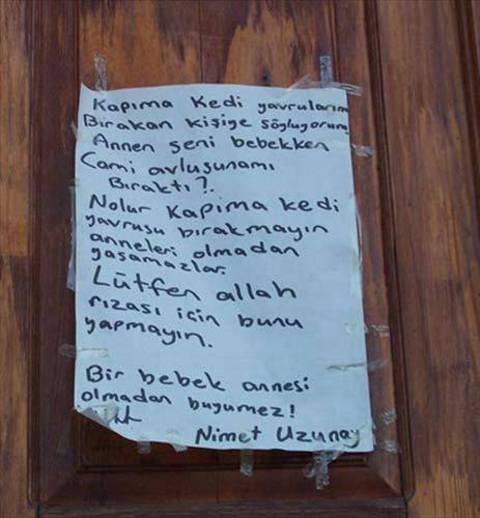 Kapıma Kedi yavrularını
Bırakan kişiye söylüyorum
Annen seni bebekken
Cami avlusunamı
Bıraktı?.
Nolur Kapıma kedi
yavrusu bırakmayın
anneleri olmadan
yaşamazlar.
Lütfen allah
rızası için bunu
yapmayın.
Bir bebek annesi
olmadan buyumez!
Nimet Uzunay